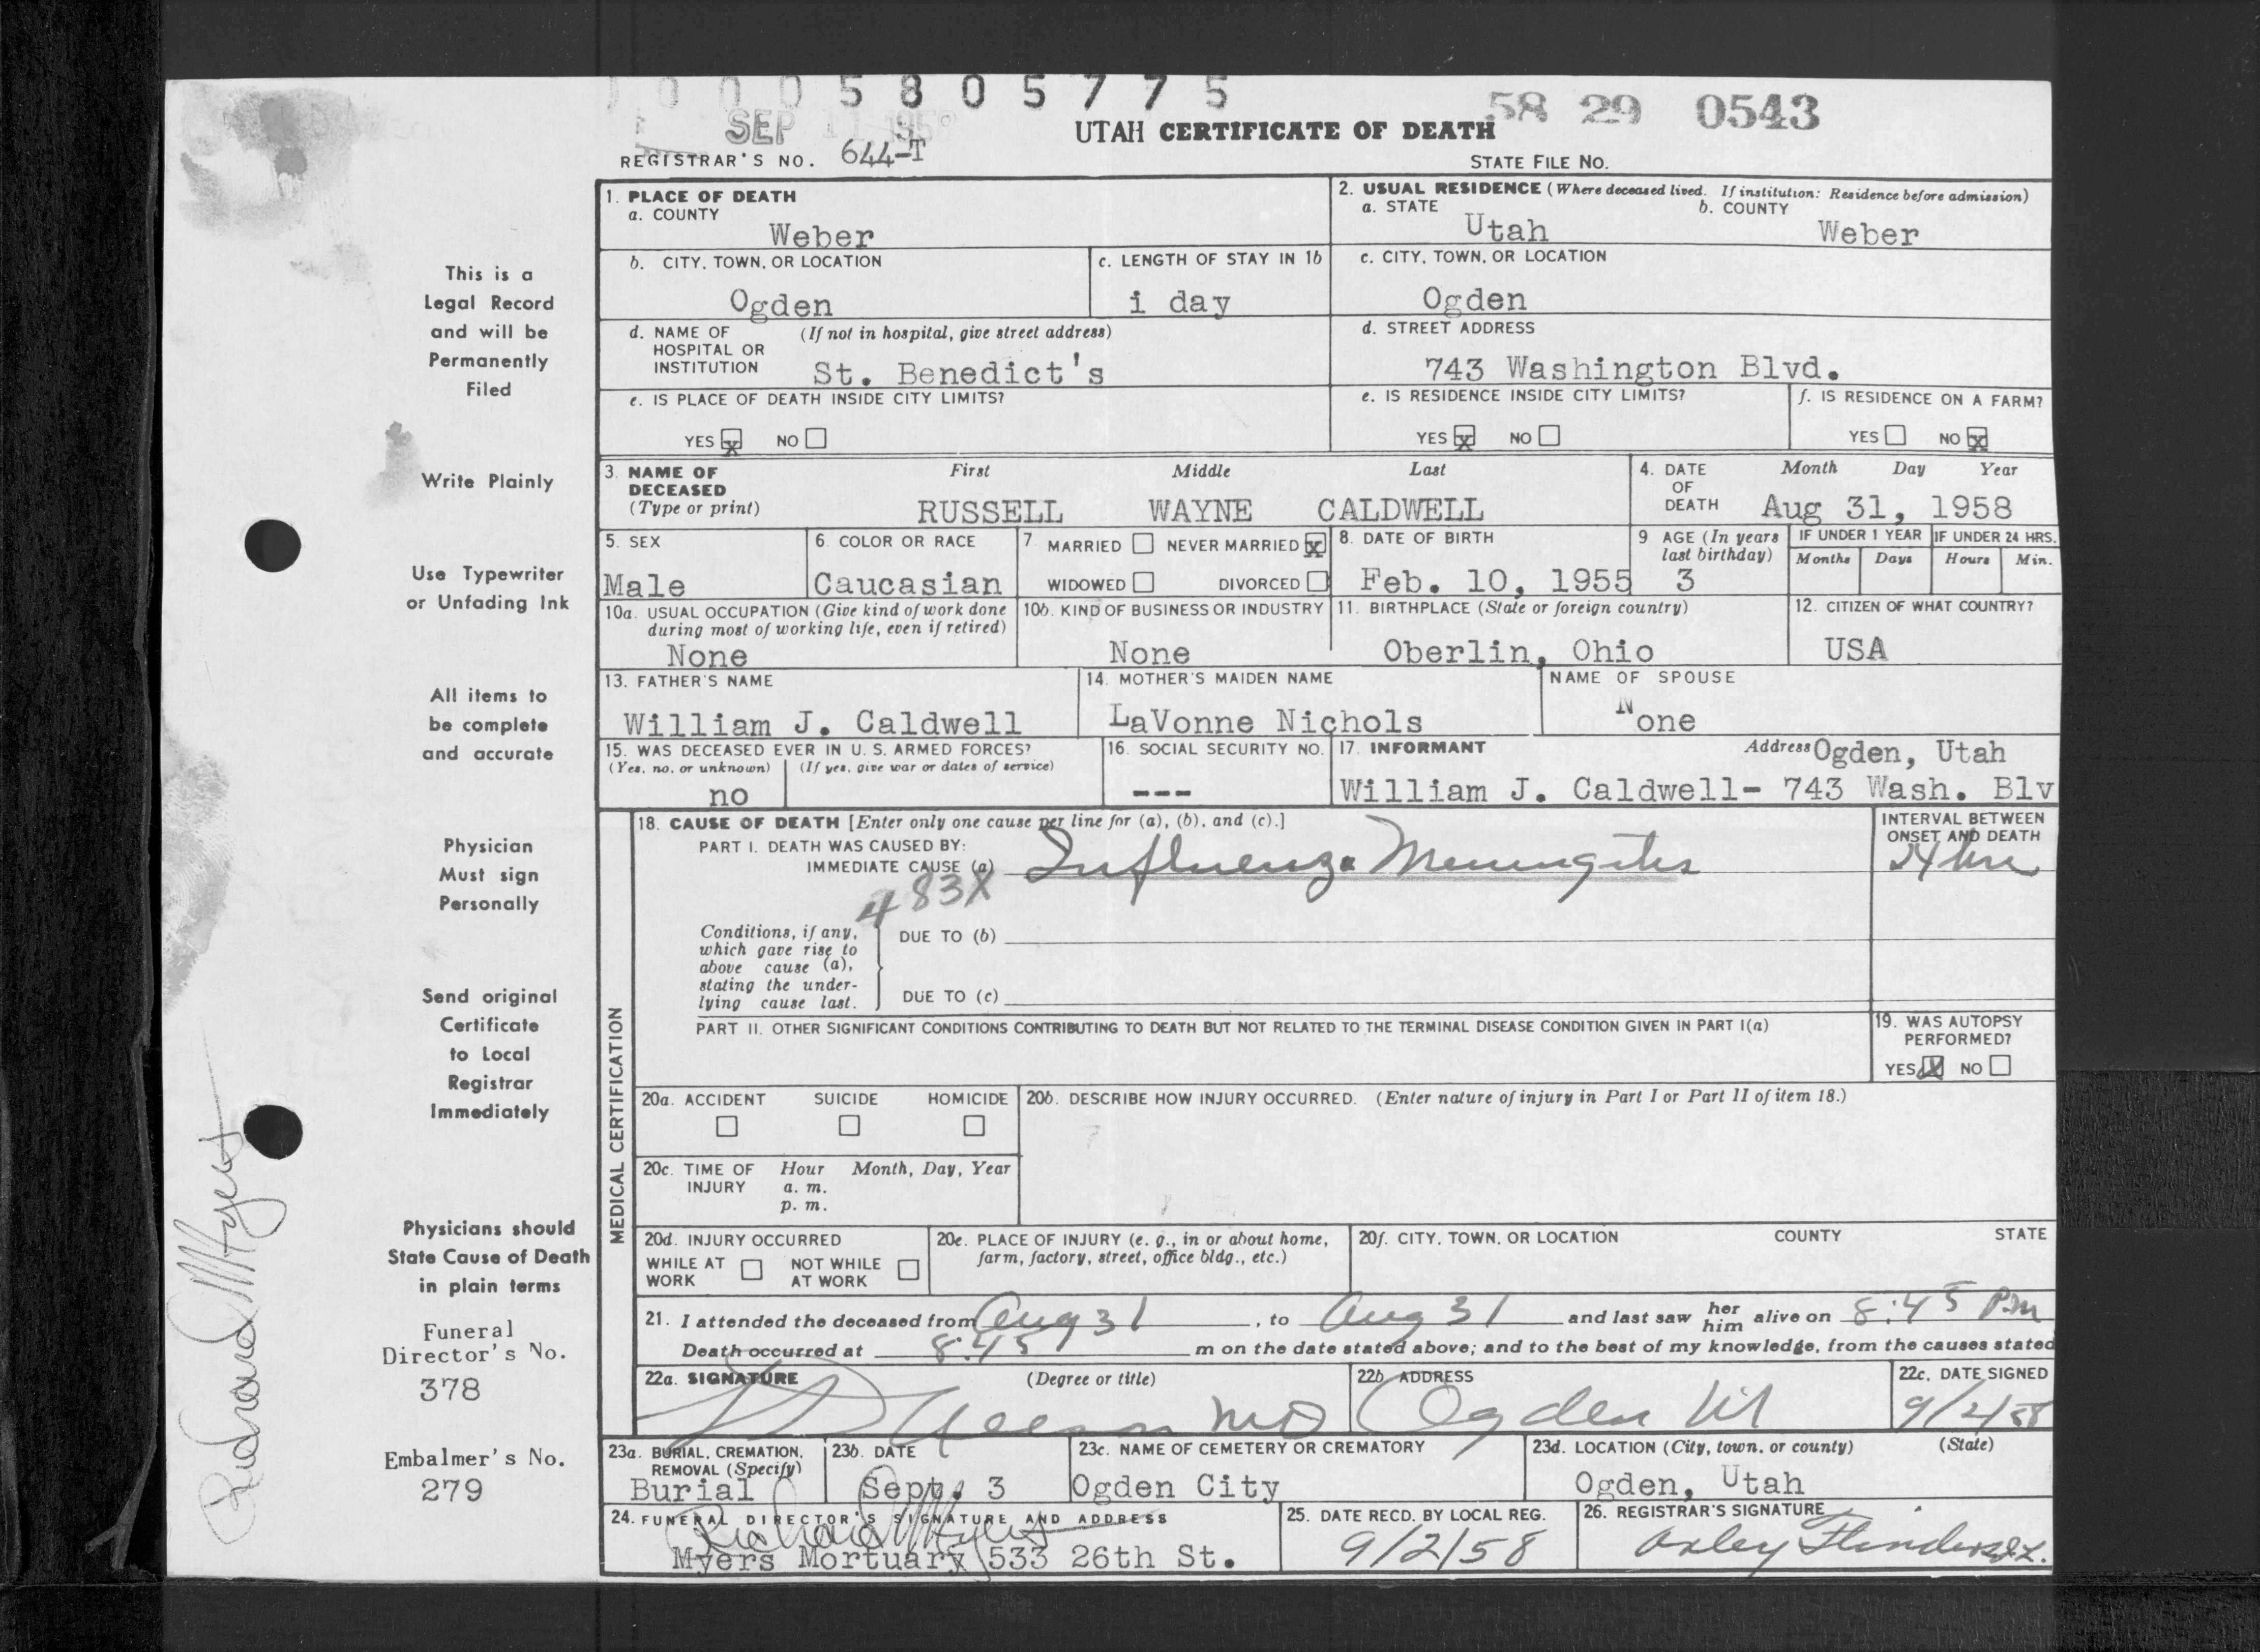 0 0 0 5 8 0 5 7 7 5
SEP 11 1958
58 29 0543
UTAH CERTIFICATE OF DEATH
REGISTRAR'S NO. 644-T
STATE FILE NO.
This is a
Legal Record
and will be
Permanently
Filed
Write Plainly
Use Typewriter
or Unfading Ink
All items to
be complete
and accurate
Physician
Must sign
Personally
Send original
Certificate
to Local
Registrar
Immediately
Physicians should
State Cause of Death
in plain terms
Funeral
Director's No.
378
Embalmer's No.
279
Richard Myers
1. PLACE OF DEATH
a. COUNTY
Weber
2. USUAL RESIDENCE (Where deceased lived. If institution: Residence before admission)
a. STATE b. COUNTY
Utah Weber
b. CITY, TOWN, OR LOCATION
Ogden
c. LENGTH OF STAY IN 1b
i day
c. CITY, TOWN, OR LOCATION
Ogden
d. NAME OF (If not in hospital, give street address)
HOSPITAL OR
INSTITUTION St. Benedict's
d. STREET ADDRESS
743 Washington Blvd.
e. IS PLACE OF DEATH INSIDE CITY LIMITS?
YES x NO
e. IS RESIDENCE INSIDE CITY LIMITS?
YES x NO
f. IS RESIDENCE ON A FARM?
YES NO x
3. NAME OF First Middle Last
DECEASED
(Type or print) RUSSELL WAYNE CALDWELL
4. DATE Month Day Year
OF
DEATH Aug 31, 1958
5. SEX
Male
6. COLOR OR RACE
Caucasian
7. MARRIED NEVER MARRIED x
WIDOWED DIVORCED
8. DATE OF BIRTH
Feb. 10, 1955
9 AGE (In years
last birthday)
3
IF UNDER 1 YEAR
Months Days
IF UNDER 24 HRS.
Hours Min.
10a. USUAL OCCUPATION (Give kind of work done
during most of working life, even if retired)
None
10b. KIND OF BUSINESS OR INDUSTRY
None
11. BIRTHPLACE (State or foreign country)
Oberlin, Ohio
12. CITIZEN OF WHAT COUNTRY?
USA
13. FATHER'S NAME
William J. Caldwell
14. MOTHER'S MAIDEN NAME
LaVonne Nichols
NAME OF SPOUSE
None
15. WAS DECEASED EVER IN U. S. ARMED FORCES?
(Yes, no, or unknown) (If yes, give war or dates of service)
no
16. SOCIAL SECURITY NO.
---
17. INFORMANT Address Ogden, Utah
William J. Caldwell- 743 Wash. Blv
MEDICAL CERTIFICATION
18. CAUSE OF DEATH [Enter only one cause per line for (a), (b), and (c).]
PART I. DEATH WAS CAUSED BY:
IMMEDIATE CAUSE (a) Influenza Meningitis
483X
INTERVAL BETWEEN
ONSET AND DEATH
24 hrs
Conditions, if any,
which gave rise to
above cause (a),
stating the under-
lying cause last.
DUE TO (b)
DUE TO (c)
PART II. OTHER SIGNIFICANT CONDITIONS CONTRIBUTING TO DEATH BUT NOT RELATED TO THE TERMINAL DISEASE CONDITION GIVEN IN PART I(a)
19. WAS AUTOPSY
PERFORMED?
YES X NO
20a. ACCIDENT SUICIDE HOMICIDE
20b. DESCRIBE HOW INJURY OCCURRED. (Enter nature of injury in Part I or Part II of item 18.)
20c. TIME OF Hour Month, Day, Year
INJURY a. m.
p. m.
20d. INJURY OCCURRED
WHILE AT NOT WHILE
WORK AT WORK
20e. PLACE OF INJURY (e. g., in or about home,
farm, factory, street, office bldg., etc.)
20f. CITY, TOWN, OR LOCATION COUNTY STATE
21. I attended the deceased from Aug 31, to Aug 31 and last saw her him alive on 8:45 P.m
Death occurred at 8:45 m on the date stated above; and to the best of my knowledge, from the causes stated
22a. SIGNATURE (Degree or title)
MD
22b ADDRESS
Ogden Ut
22c. DATE SIGNED
9/2/58
23a. BURIAL, CREMATION,
REMOVAL (Specify)
Burial
23b. DATE
Sept. 3
23c. NAME OF CEMETERY OR CREMATORY
Ogden City
23d. LOCATION (City, town, or county) (State)
Ogden, Utah
24. FUNERAL DIRECTOR'S SIGNATURE AND ADDRESS
Richard Myers
Myers Mortuary 533 26th St.
25. DATE RECD. BY LOCAL REG.
9/2/58
26. REGISTRAR'S SIGNATURE